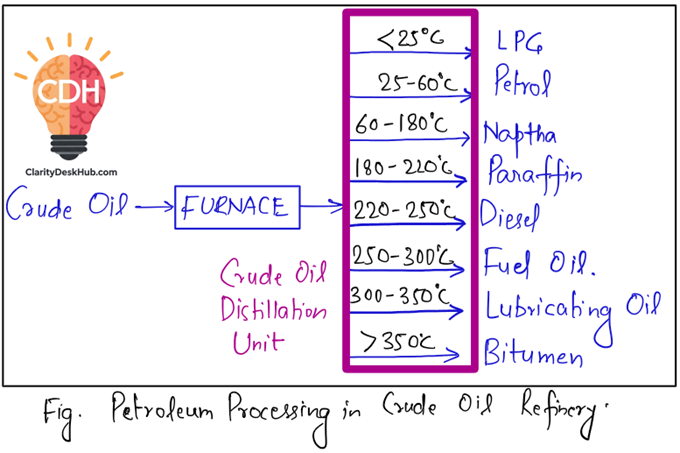 CDH
ClarityDeskHub.com
Crude Oil
FURNACE
Crude Oil
Distillation
Unit
<25°C LPG
25-60°C Petrol
60-180°C Naptha
180-220°C Paraffin
220-250°C Diesel
250-300°C Fuel Oil.
300-350°C Lubricating Oil
>350°C Bitumen
Fig. Petroleum Processing in Crude Oil Refinery.